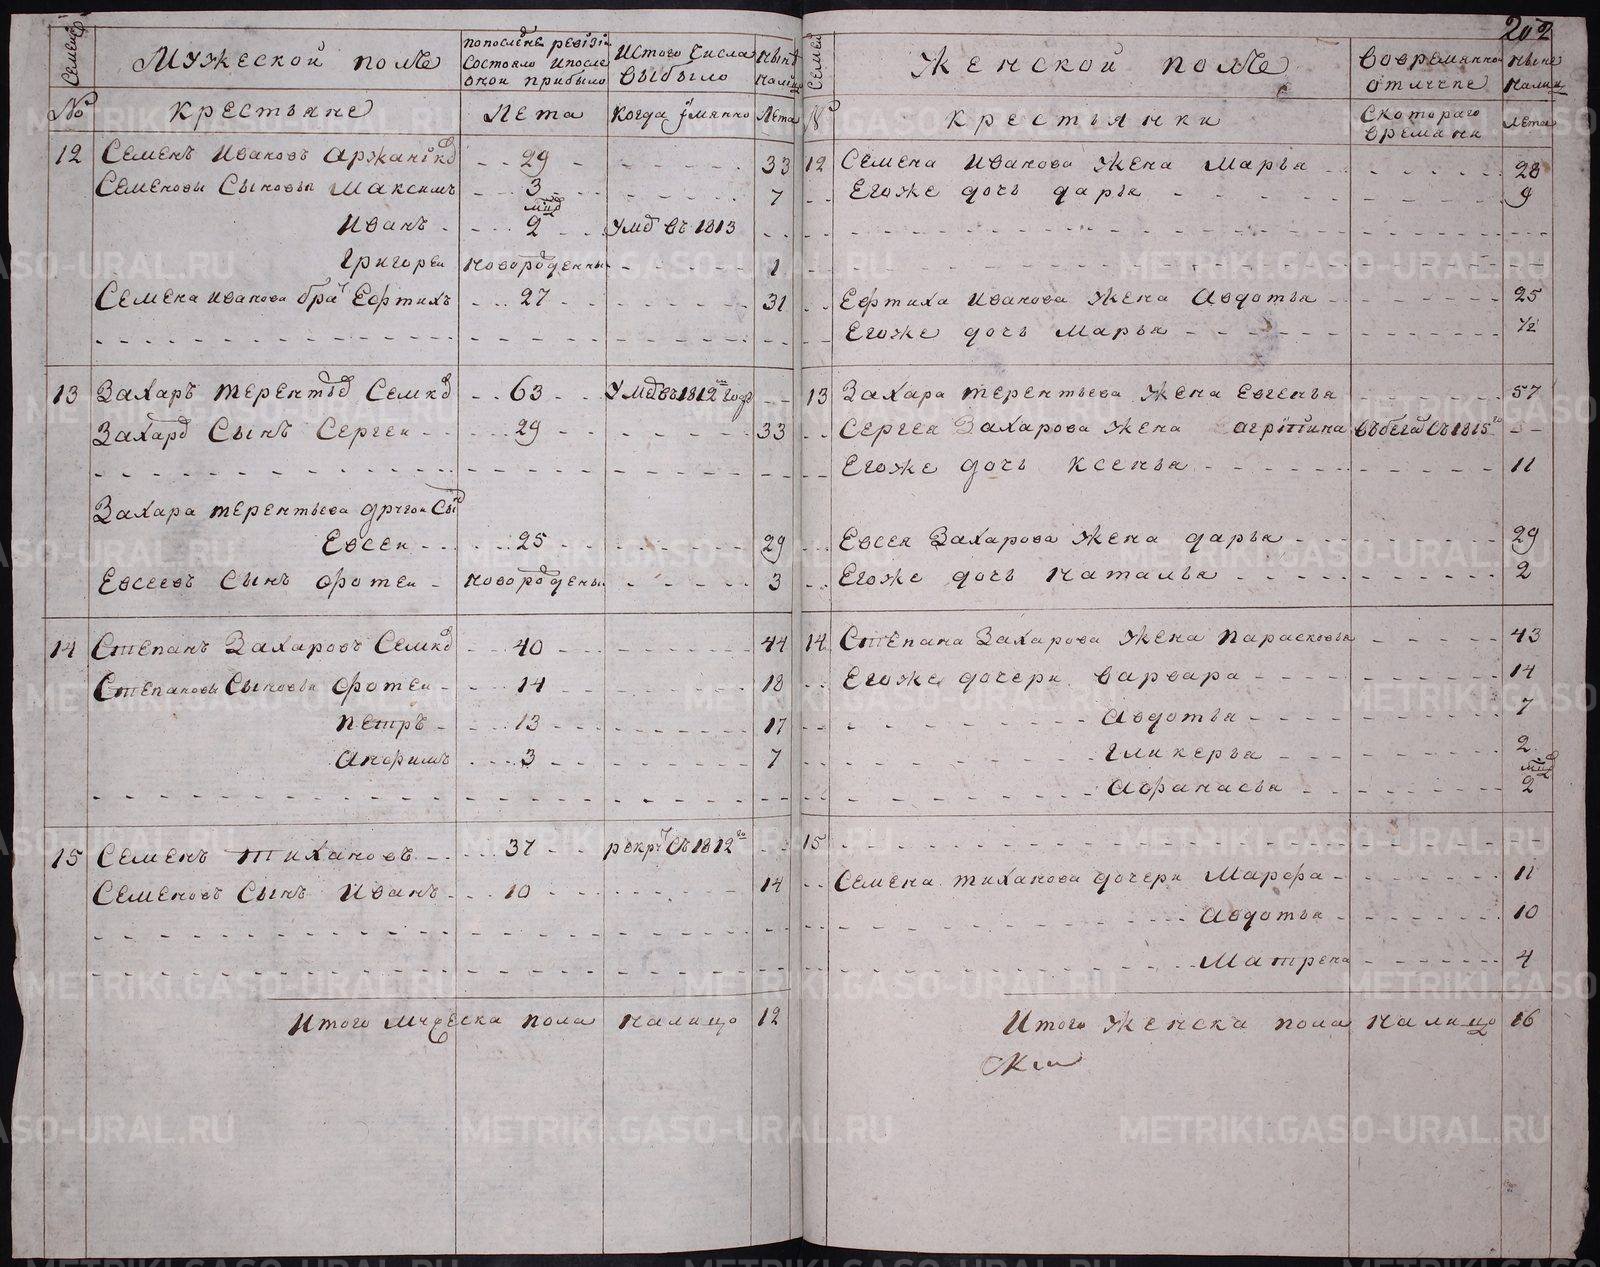 202
Семей
Мужеской полъ
по последне ревизи
состояло и после
оной прибыло
Ис того числа
выбыло
ныне
налицо
№
крестьяне
Лета
Когда имянно
Лета
12 Семенъ Ивановъ Аржанико 29 33
Семеновы Сыновья Максимъ 3 7
мцд
Иванъ 2 умд въ 1813
Григореи новорожденны 1
Семена Иванова бра Ефтихъ 27 31
13 Захаръ терентьвд Семкд 63 Умд въ 1812 году
Захард Сынъ Сергеи 29 33
Захара терентьева другои Сы
Евсеи 25 29
Евсеевъ Сынъ Фотеи новорожены 3
14 Степанъ Захаровъ Семкд 40 44
Степановы Сыновьи Фотеи 14 18
Петръ 13 17
Анфимъ 3 7
15 Семенъ тихановъ 37 рекру съ 1812го
Семеновъ Сынъ Иванъ 10 14
Итого мужеска пола налицо 12
Семей
Женской полъ
во времянно
отлучке
ныне
налицо
№
крестьянки
с котораго
времяни
лета
12 Семена Иванова жена Марья 28
Егоже дочь дарья 9
Ефтиха Иванова жена Авдотья 25
Егоже дочь Марья 1/2
13 Захара терентьева жена Евгенья 57
Сергея Захарова жена агрипина въ бега съ 1815го
Егоже дочь Ксенья 11
Евсея Захарова жена дарья 29
Егоже дочь наталья 2
14 Степана Захарова жена парасковья 43
Егоже дочери варвара 14
Авдотья 7
гликерья 2
мцд
Афанасья 2
15
Семена тиханова дочери Марфа 11
Авдотья 10
Матрена 4
Итого женска пола налицо 16